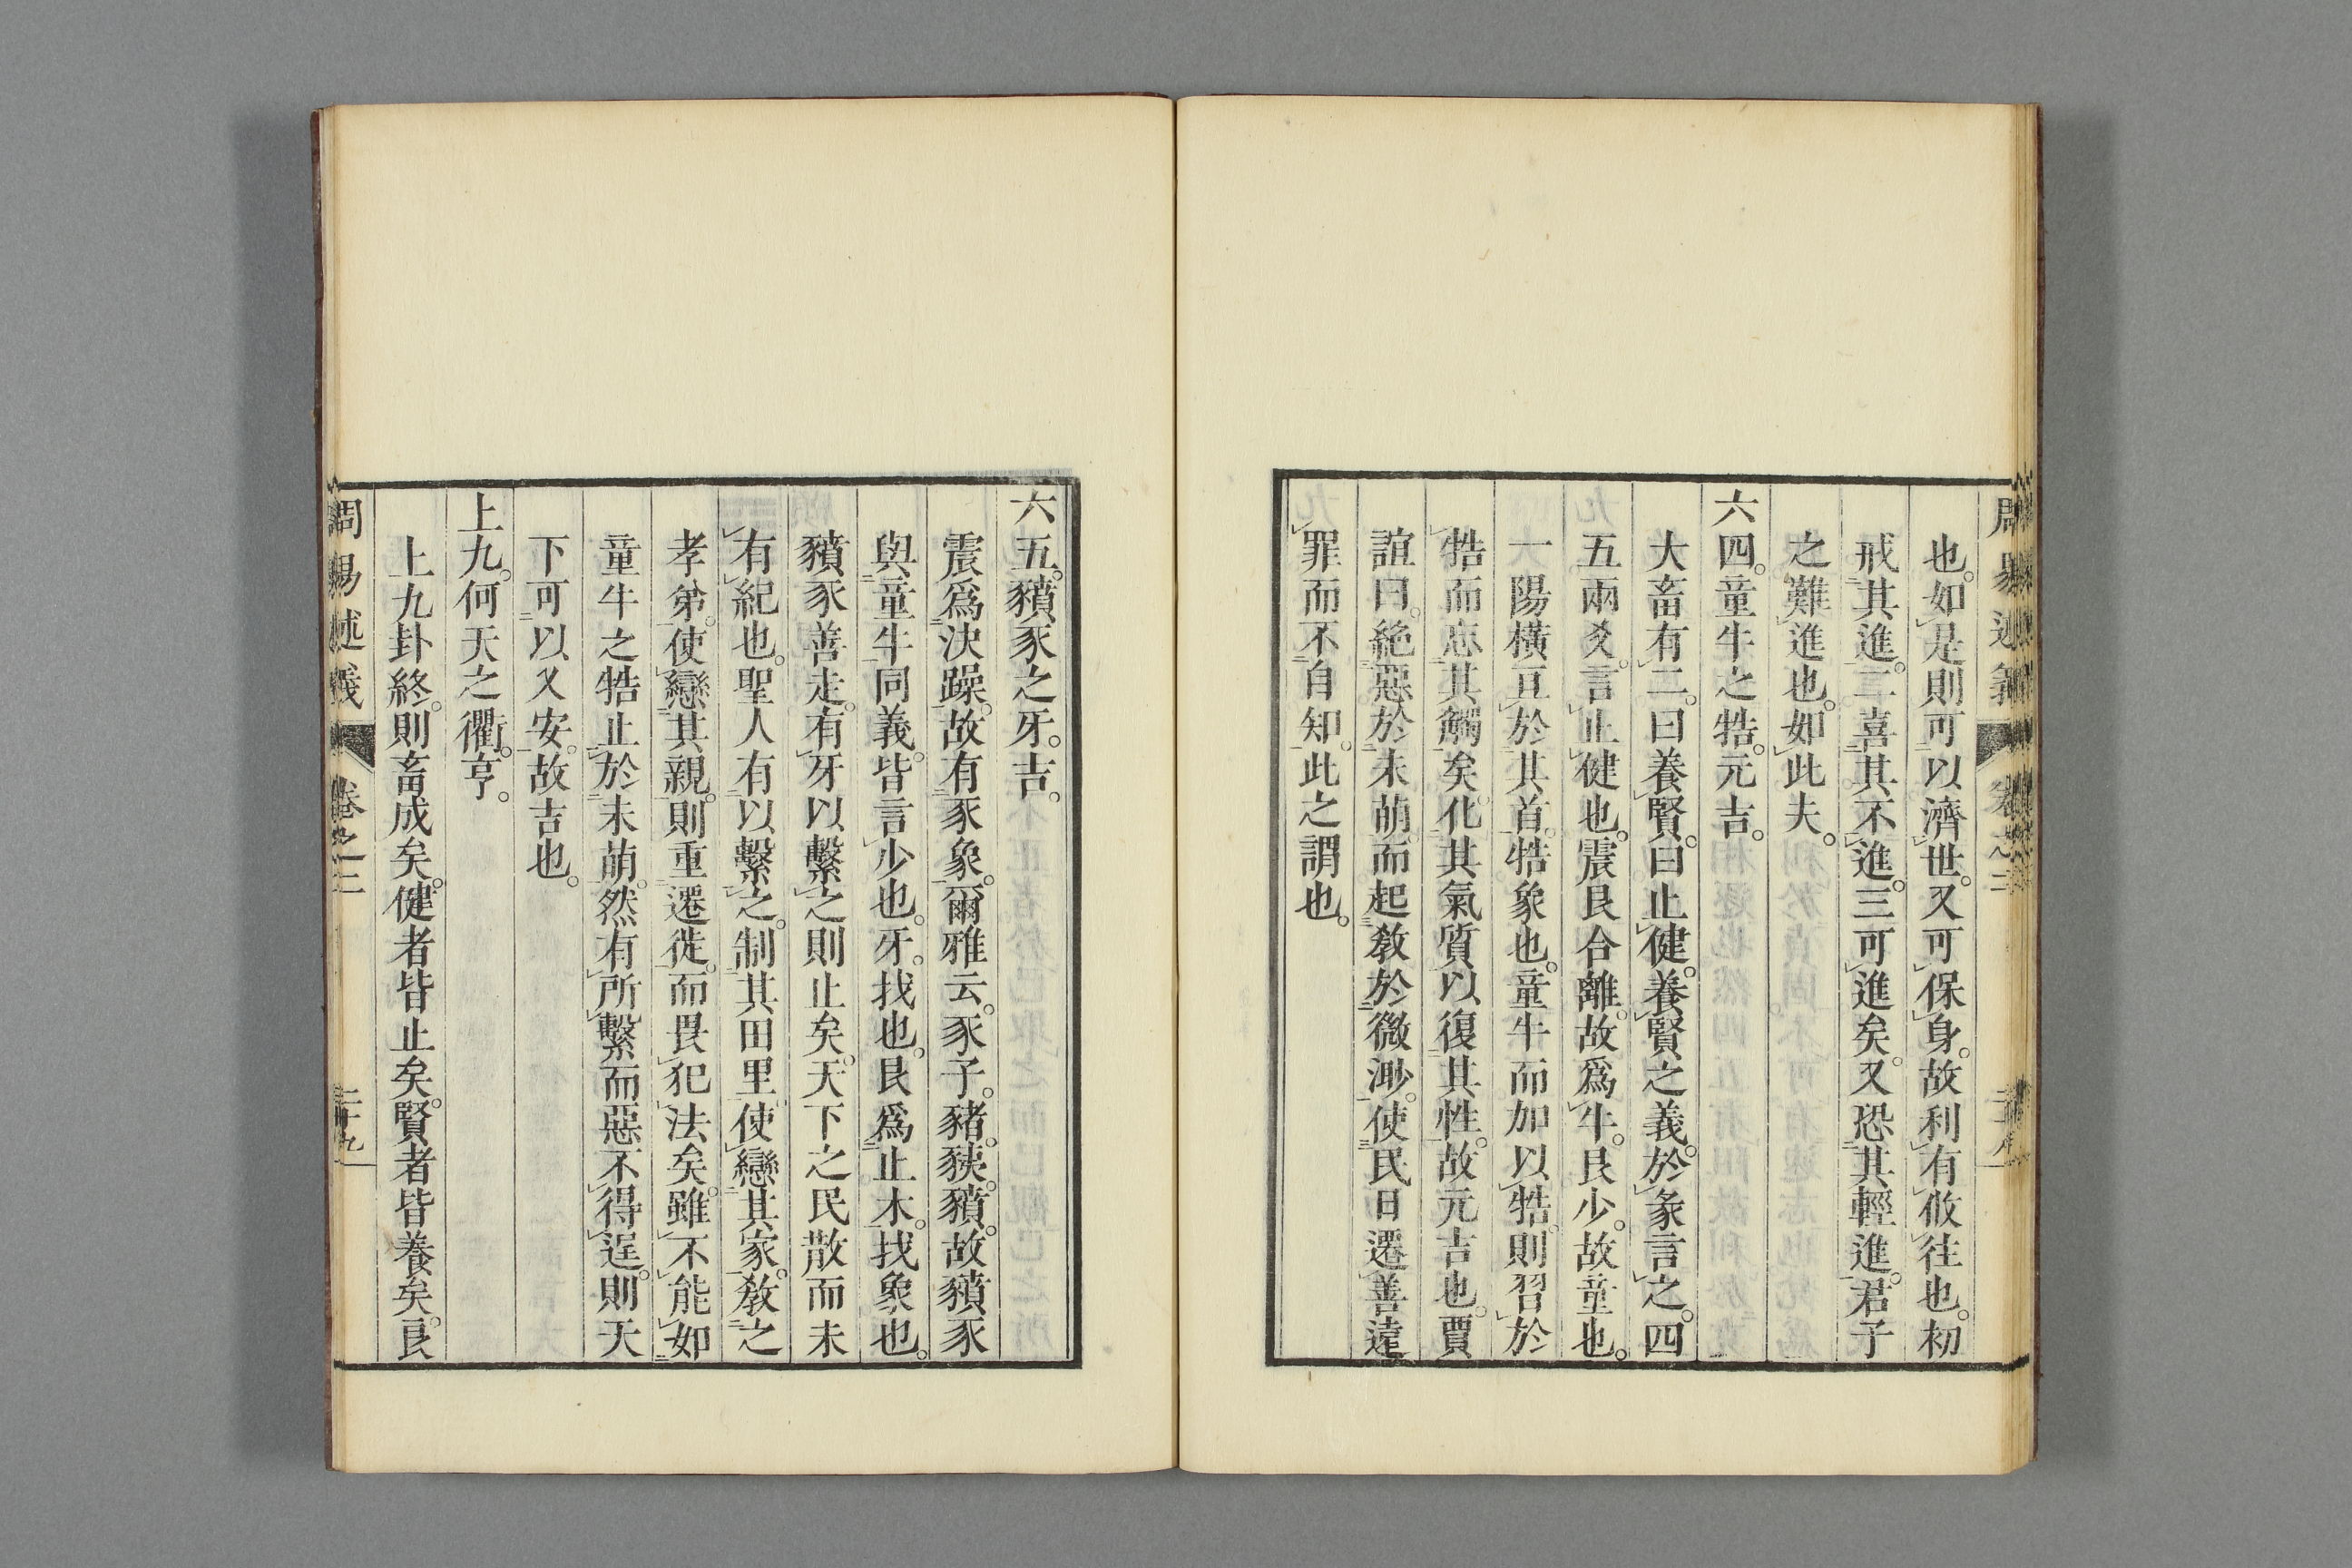 也。如是則可以濟世。又可保身。故利有攸往也。初
戒其進。二喜其不進。三可進矣。又恐其輕進。君子
之難進也。如此夫。
六四。童牛之牿。元吉。
大畜有二。曰養賢。曰止健。養賢之義。於彖言之。四
五兩爻。言止健也。震艮合離。故爲牛。艮少。故童也。
一陽橫亘於其首。牿象也。童牛而加以牿。則習於
牿而忘其觸矣。化其氣質以復其性。故元吉也。賈
誼曰。絶惡於未萌。而起敎於微渺。使民日遷善遠
罪而不自知。此之謂也。
六五。豶豕之牙。吉。
震爲決躁。故有豕象。爾雅云。豕子。豬。豶。故豶豕
與童牛同義。皆言少也。牙。杙也。艮爲止木。杙象也。
豶豕善走。有牙以繫之則止矣。天下之民散而未
有紀也。聖人有以繫之。制其田里使戀其家。敎之
孝弟。使戀其親。則重遷徙。而畏犯法矣。雖不能如
童牛之牿止於未萌。然有所繫而惡不得逞。則天
下可以又安。故吉也。
上九。何天之衢。亨。
上九卦終。則畜成矣。健者皆止矣。賢者皆養矣。艮
周易述義 卷之三 二十九